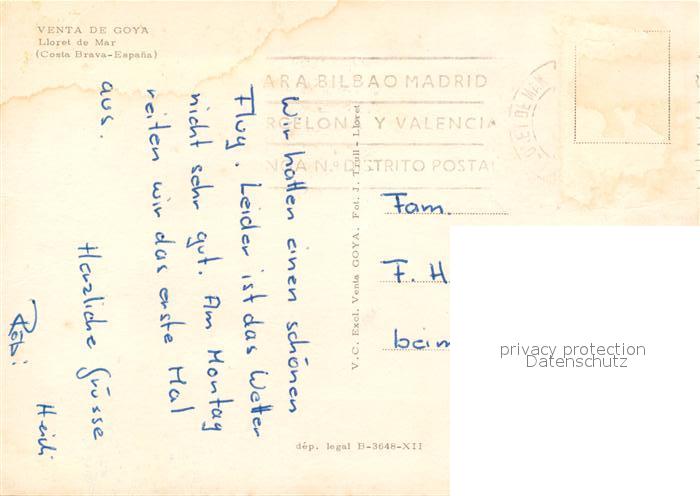 VENTA DE GOYA
Lloret de Mar
(Costa Brava-España)
Wir hatten einen schönen
Flug. Leider ist das Wetter
nicht sehr gut. Am Montag
reiten wir das erste Mal
aus.
Herzliche Grüsse
Heidi
V. C. Excl. Venta GOYA. Fot. J. Trull - Lloret
dép. legal B-3648-XII
ARA BILBAO MADRID
RCELONA Y VALENCIA
N.º DISTRITO POSTAL
Fam.
F. H.
beim
privacy protection
Datenschutz